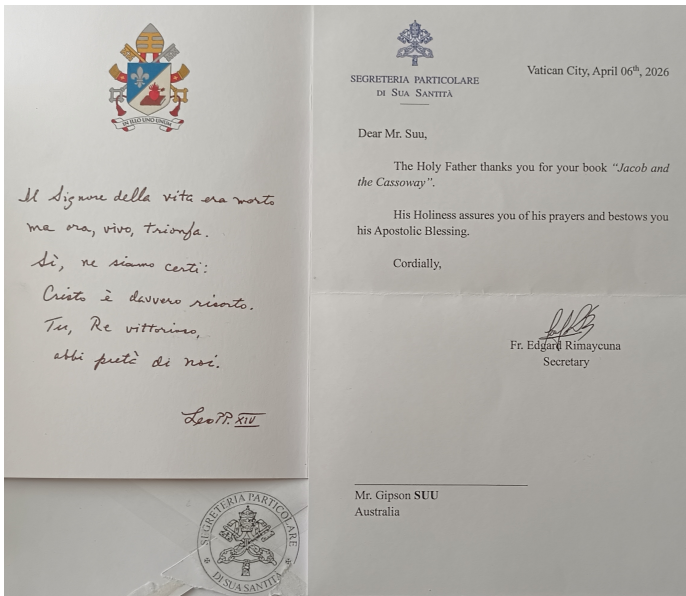 IN ILLO UNO UNUM
Il Signore della vita era morto
ma ora, vivo, trionfa.
Sì, ne siamo certi:
Cristo è davvero risorto.
Tu, Re vittorioso,
abbi pietà di noi.
Leo PP. XIV
SEGRETERIA PARTICOLARE
DI SUA SANTITÀ
SEGRETERIA PARTICOLARE
DI SUA SANTITÀ
Vatican City, April 06th, 2026
Dear Mr. Suu,
The Holy Father thanks you for your book “Jacob and
the Cassoway”.
His Holiness assures you of his prayers and bestows you
his Apostolic Blessing.
Cordially,
Fr. Edgard Rimaycuna
Secretary
Mr. Gipson SUU
Australia